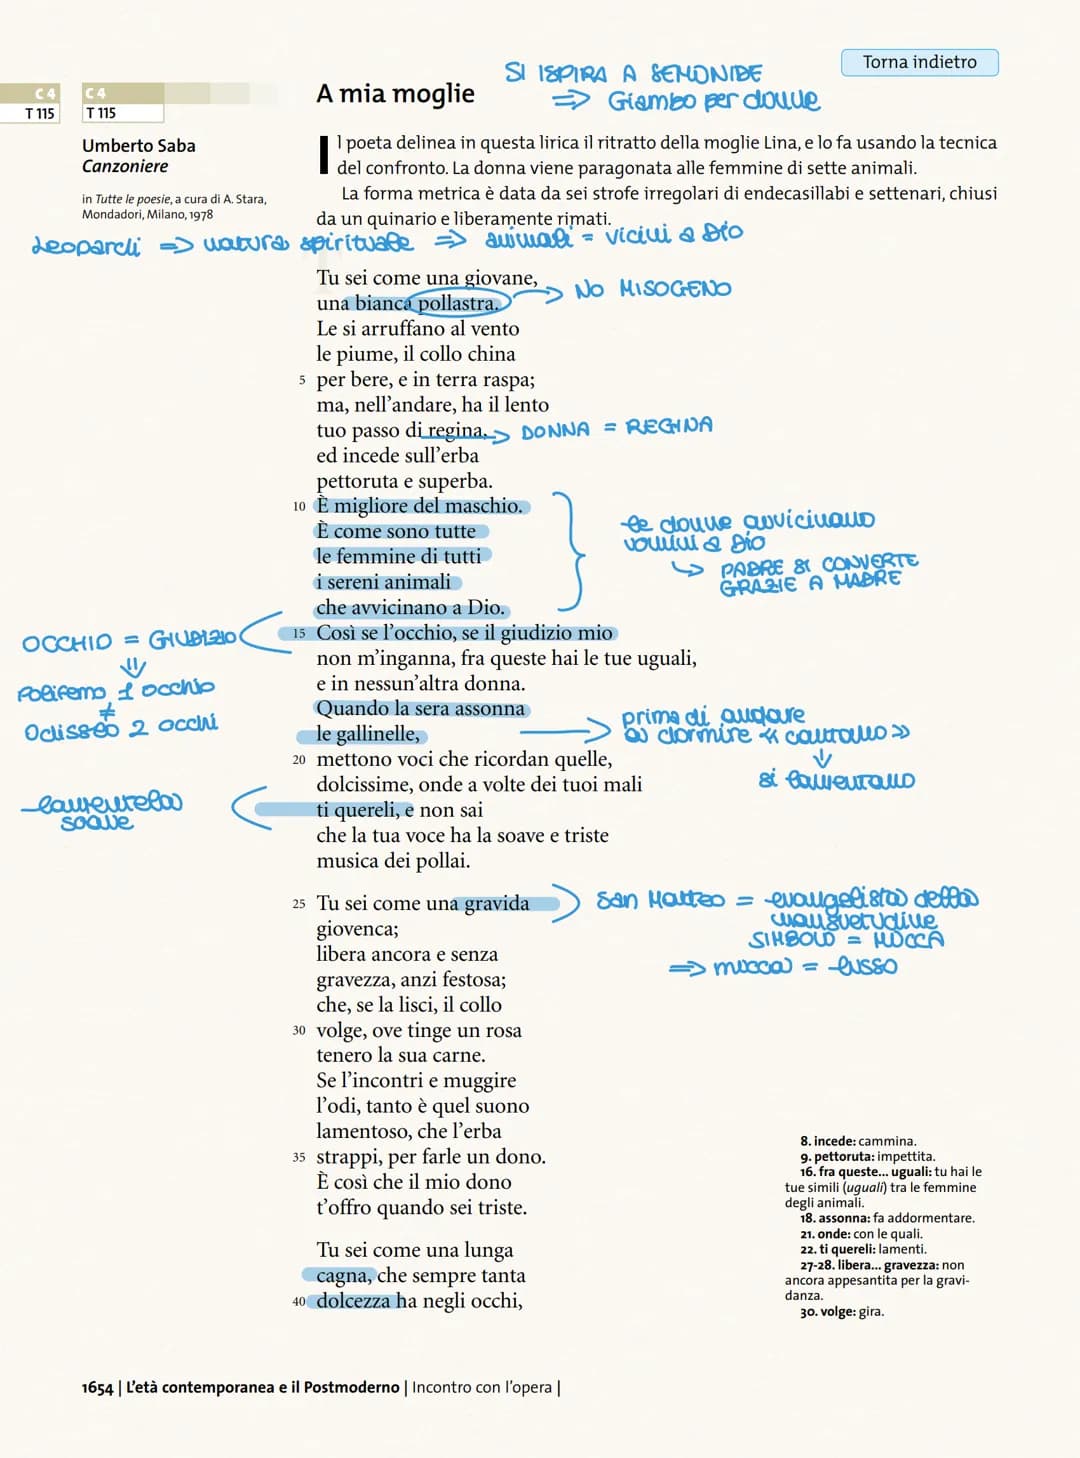 Torna indietro
SI ISPIRA A SEMONIDE
=> Giambo per donne
C 4
T 115
C 4
T 115
A mia moglie
Umberto Saba
Canzoniere
in Tutte le poesie, a cura di A. Stara,
Mondadori, Milano, 1978
Il poeta delinea in questa lirica il ritratto della moglie Lina, e lo fa usando la tecnica
del confronto. La donna viene paragonata alle femmine di sette animali.
La forma metrica è data da sei strofe irregolari di endecasillabi e settenari, chiusi
da un quinario e liberamente rimati.
Leopardi => natura spirituale => animali = vicini a Dio
Tu sei come una giovane,
una bianca pollastra.
NO MISOGENO
Le si arruffano al vento
le piume, il collo china
5 per bere, e in terra raspa;
ma, nell'andare, ha il lento
tuo passo di regina,
DONNA = REGINA
ed incede sull'erba
pettoruta e superba.
10 È migliore del maschio.
È come sono tutte
le femmine di tutti
i sereni animali
che avvicinano a Dio.
le donne avvicinano
uomini a Dio
PADRE SI CONVERTE
GRAZIE A MADRE
15 Così se l'occhio, se il giudizio mio
non m'inganna, fra queste hai le tue uguali,
e in nessun'altra donna.
OCCHIO = GIUDIZIO
Polifemo 1 occhio
≠
Odisseo 2 occhi
Quando la sera assonna
le gallinelle,
prima di andare
a dormire « cantano »
si lamentano
20 mettono voci che ricordan quelle,
dolcissime, onde a volte dei tuoi mali
ti quereli, e non sai
che la tua voce ha la soave e triste
musica dei pollai.
lamentela
soave
25 Tu sei come una gravida
giovenca;
San Matteo = evangelista della
mansuetudine
SIMBOLO = MUCCA
=> mucca = lusso
libera ancora e senza
gravezza, anzi festosa;
che, se la lisci, il collo
30 volge, ove tinge un rosa
tenero la sua carne.
Se l'incontri e muggire
l'odi, tanto è quel suono
lamentoso, che l'erba
35 strappi, per farle un dono.
È così che il mio dono
t'offro quando sei triste.
Tu sei come una lunga
cagna, che sempre tanta
40 dolcezza ha negli occhi,
8. incede: cammina.
9. pettoruta: impettita.
16. fra queste... uguali: tu hai le
tue simili (uguali) tra le femmine
degli animali.
18. assonna: fa addormentare.
21. onde: con le quali.
22. ti quereli: lamenti.
27-28. libera... gravezza: non
ancora appesantita per la gravi-
danza.
30. volge: gira.
1654 | L'età contemporanea e il Postmoderno | Incontro con l'opera |